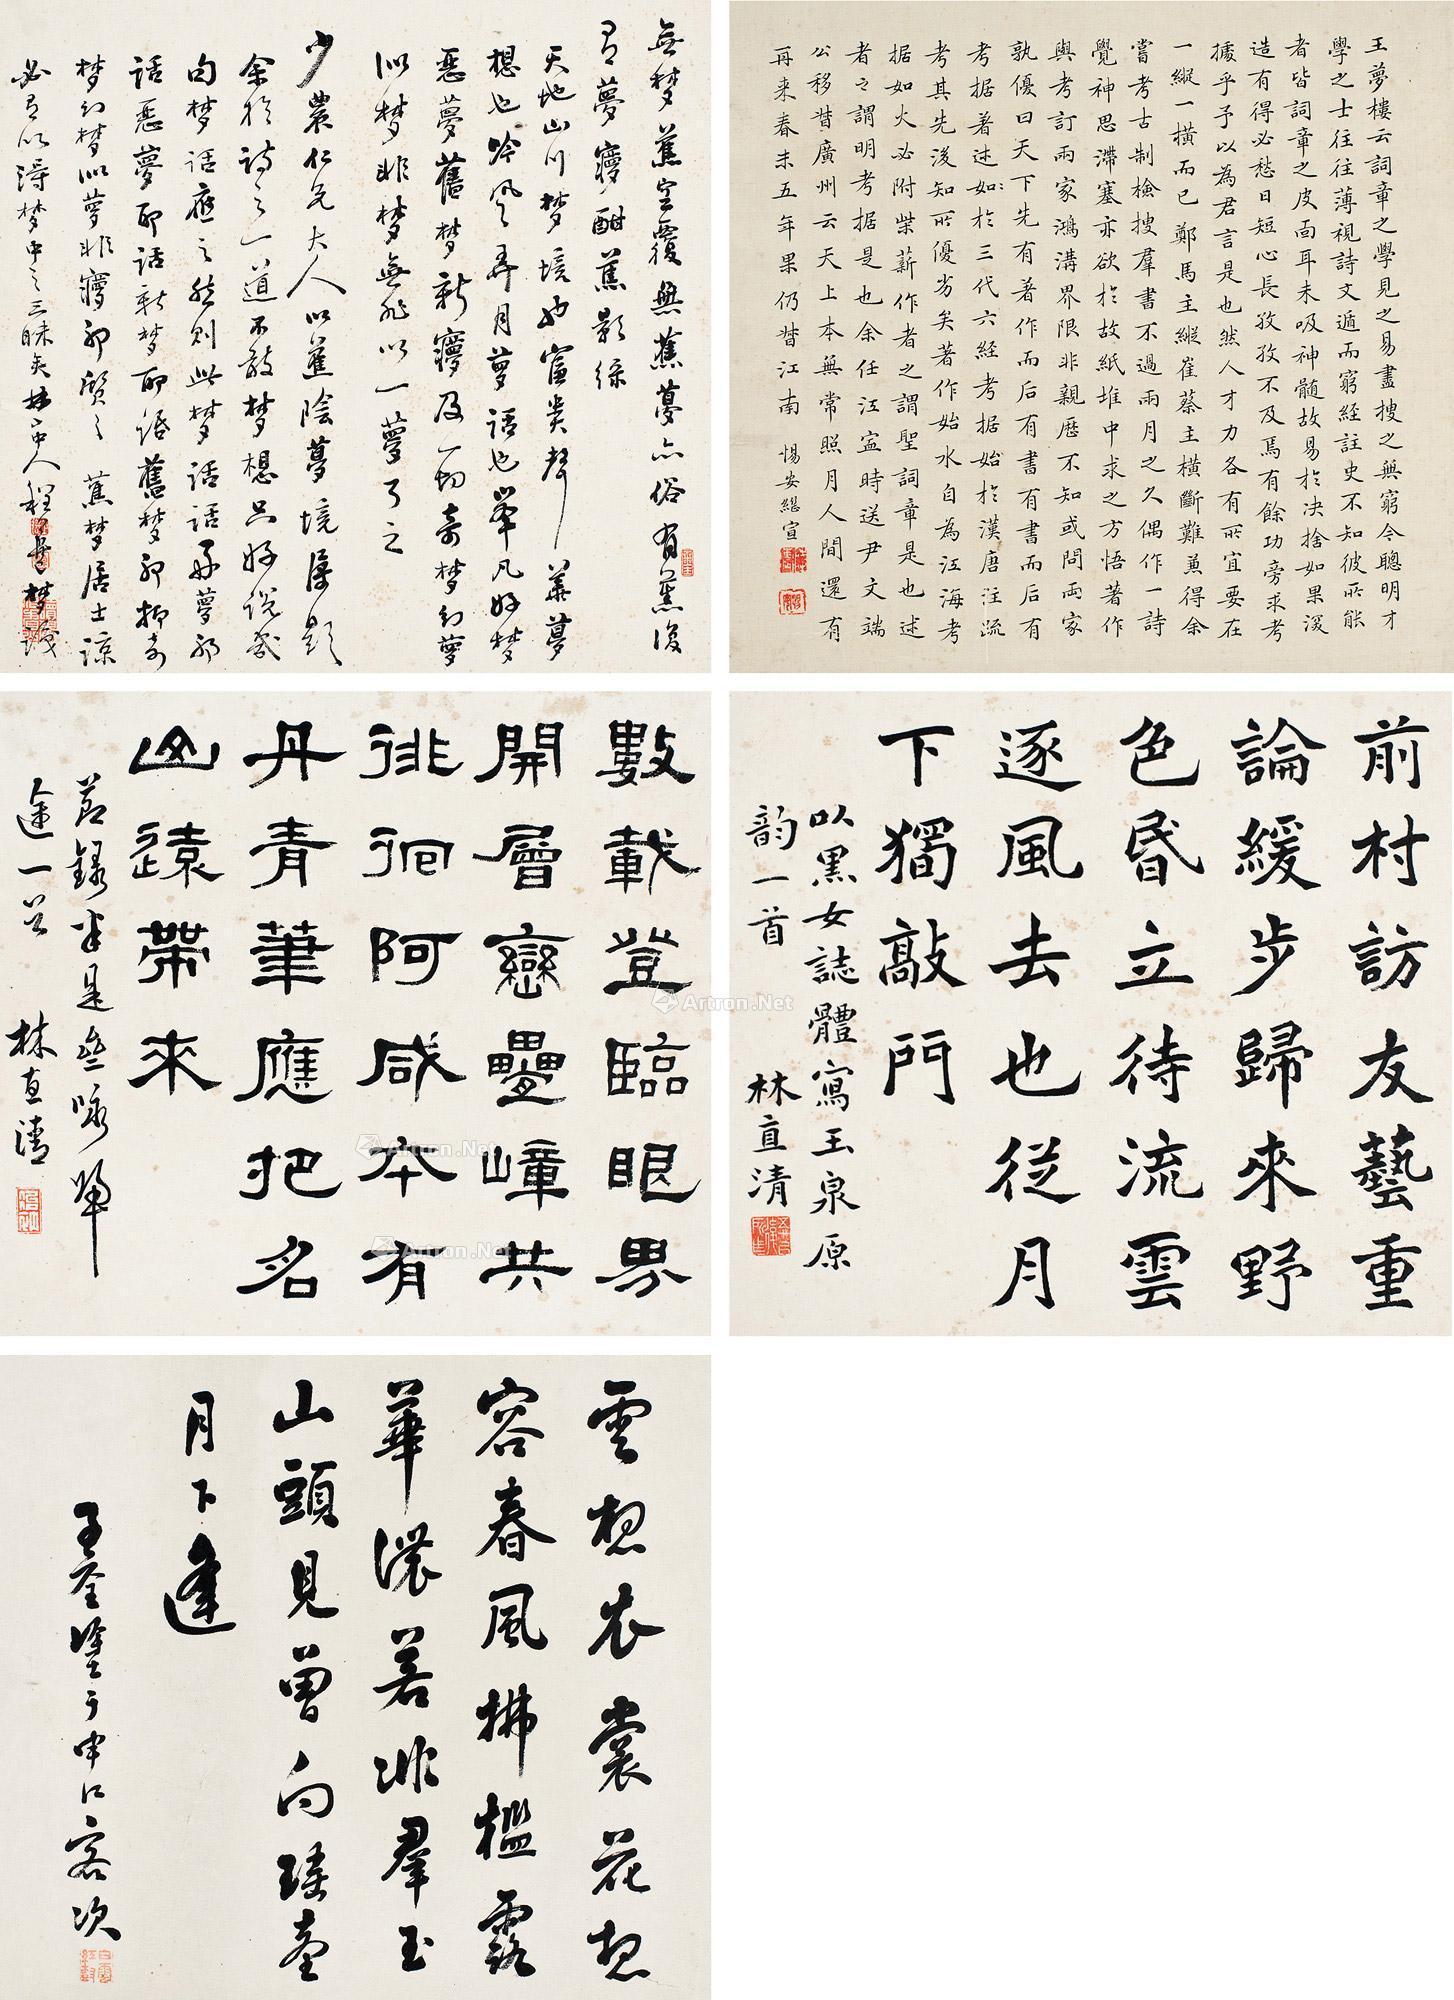 無梦蕉空覆無蕉夢亦俗有蕉復
有夢寱酣蕉影綠
天地山川梦境也富貴聲華夢
想也吟風弄月夢話也举凡好梦
惡夢舊梦新寱及一切奇梦幻夢
似梦非梦無非以一夢了之
少農仁兄大人以蕉陰夢境属题
余於詩之一道不敢梦想只好说几
句梦話應之然则此梦話話好夢耶
話惡夢耶話新梦耶話舊梦耶抑奇
梦幻梦似夢非寱耶質之蕉梦居士諒
必有以得梦中之三昧矣
王夢樓云詞章之學見之易盡搜之無窮今聰明才
學之士往往薄視詩文遁而窮經註史不知彼所能
者皆詞章之皮面耳未吸神髓故易於决捨如果深
造有得必愁日短心長孜孜不及焉有餘功旁求考
據乎予以為君言是也然人才力各有所宜要在
一縱一橫而已鄭馬主縱崔蔡主橫斷難兼得余
嘗考古制檢搜羣書不過兩月之久偶作一詩
覺神思滯塞亦欲於故紙堆中求之方悟著作
與考訂兩家鴻溝界限非親歷不知或問兩家
孰優曰天下先有著作而后有書有書而后有
考据著述如於三代六經考据始於漢唐注流
考其先後知所優劣矣著作始水自為江海考
据如火必附柴薪作者之謂聖詞章是也述
者之謂明考据是也余任江寍時送尹文端
公移督廣州云天上本無常照月人間還有
再来春未五年果仍督江南 惕安繼宣
數載登臨眼界
開層巒疊嶂共
徘徊阿咸本有
丹青筆應把名
山遠帶來
林直清
前村訪友藝重
論緩步歸來野
色昏立待流雲
逐風去也從月
下獨敲門
以黑女誌體寫玉泉原
韵一首 林直清
雲想衣裳花想
容春風拂檻露
華濃若非羣玉
山頭見曾向瑤臺
月下逢